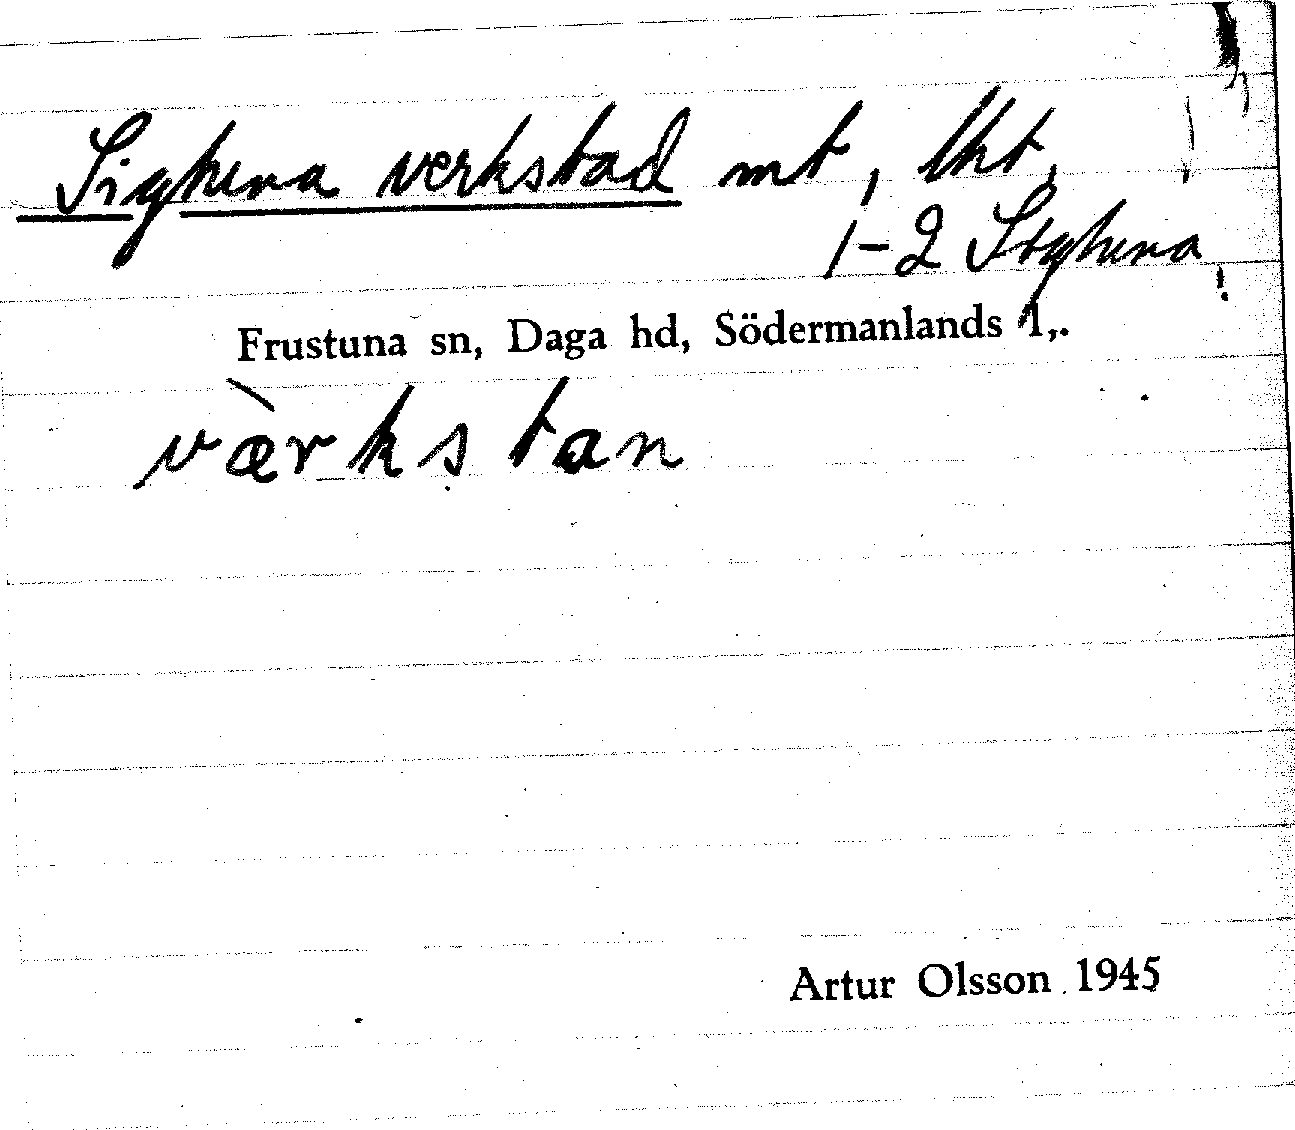 Sighera verkstad mt, lht,
1-2 Sighera
Frustuna sn, Daga hd, Södermanlands l,.
værkstan
Artur Olsson 1945